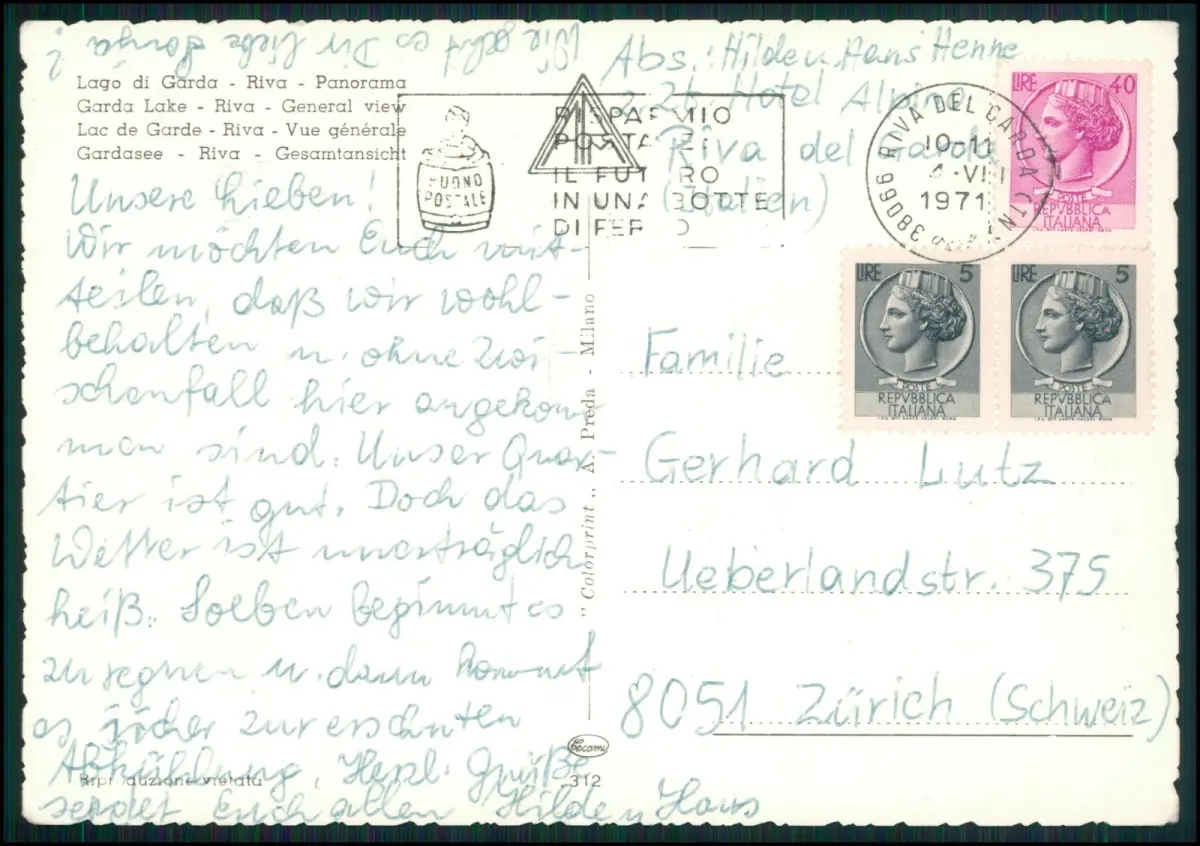 Wie geht es Dir liebe Sonja?
Lago di Garda - Riva - Panorama
Garda Lake - Riva - General view
Lac de Garde - Riva - Vue générale
Gardasee - Riva - Gesamtansicht
Unsere Lieben!
Wir möchten Euch mit-
teilen, daß wir wohl-
behalten u. ohne Zwi-
schenfall hier angekom-
men sind. Unser Quar-
tier ist gut. Doch das
Wetter ist unerträglich
heiß. Soeben beginnt es
zu regnen u. dann kommt
es sicher zur ersehnten
Abkühlung. Herzl. Grüße
sendet Euch allen Hilde u. Hans
Riproduzione vietata
BUONO
POSTALE
RISPARMIO
POSTALE:
IL FUTURO
IN UNA BOTTE
DI FERRO
"Colorprint" A. Preda - Milano
Cecami
312
Abs.: Hilde u. Hans Henne
Hotel Alpino
Riva del Garda
(Italien)
38066 RIVA DEL GARDA (TN)
10-11
1971
LIRE 40
POSTE
REPVBBLICA
ITALIANA
LIRE 5
POSTE
REPVBBLICA
ITALIANA
LIRE 5
POSTE
REPVBBLICA
ITALIANA
Familie
Gerhard Lutz
Ueberlandstr. 375
8051 Zürich (Schweiz)